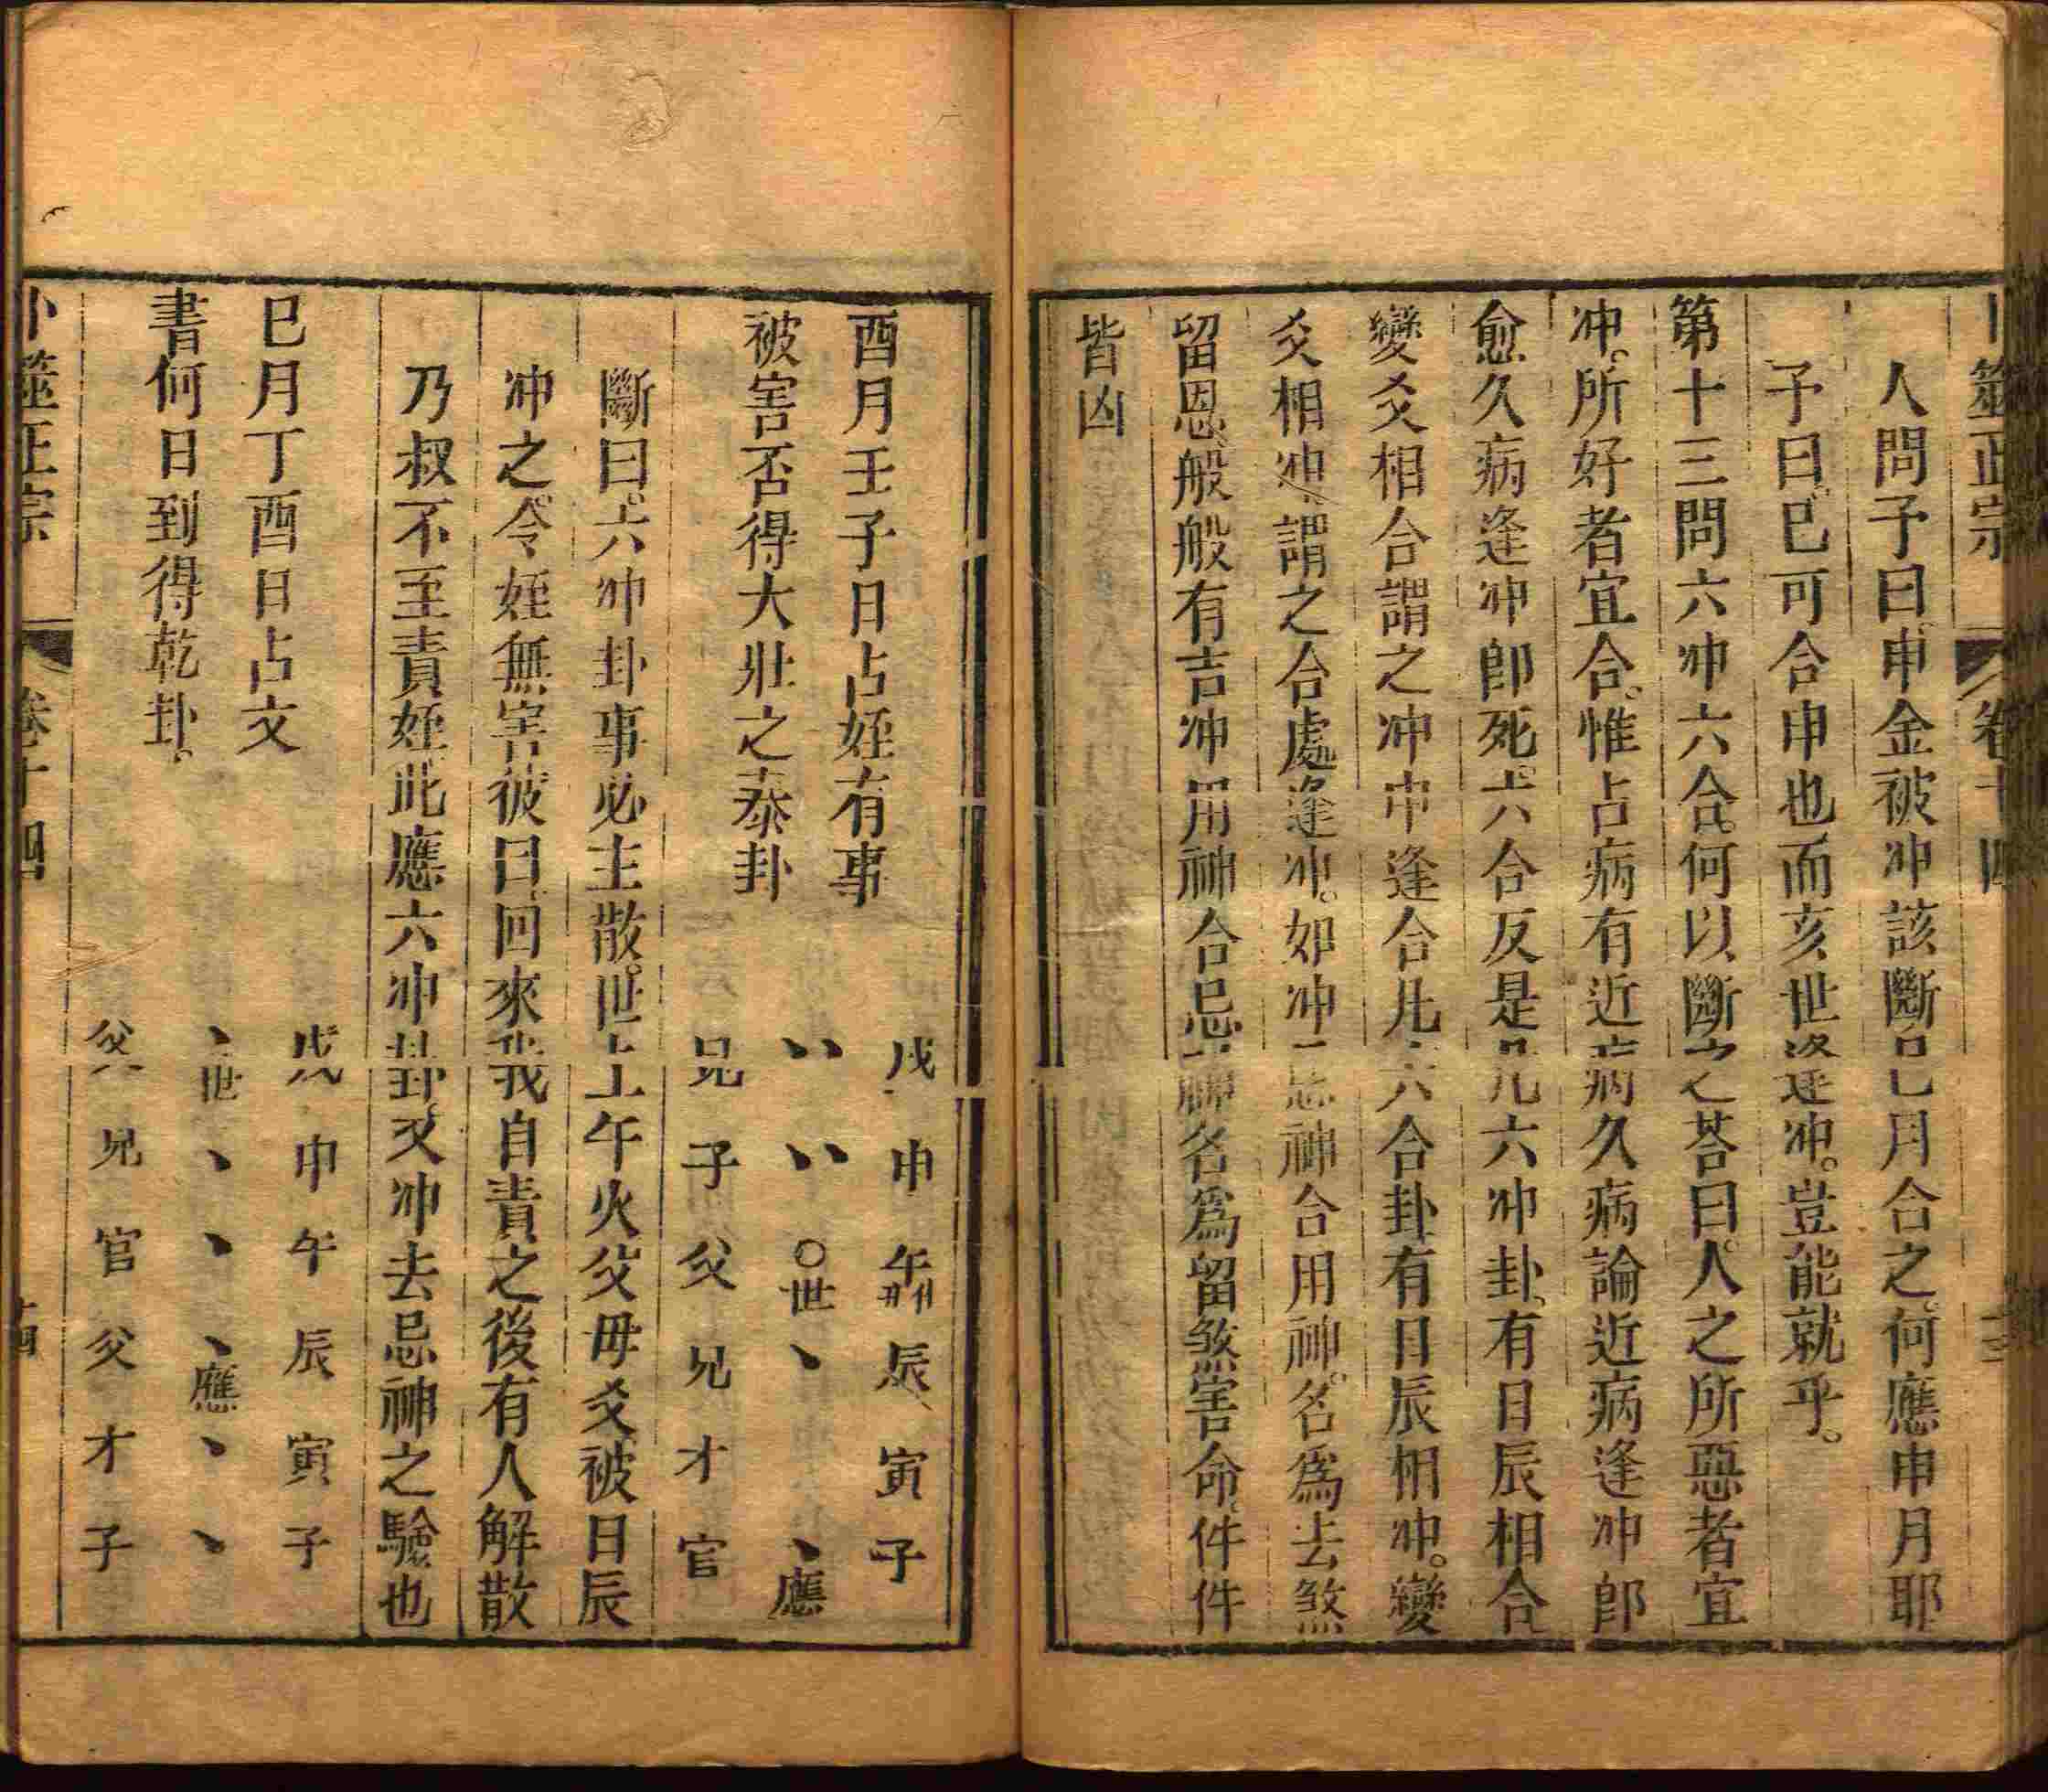 卜筮正宗 卷十四
人問予曰申金被冲該斷巳月合之何應申月耶
予曰巳可合申也而亥世逢冲豈能就乎
第十三問六冲六合何以斷之荅曰人之所惡者宜
冲所好者宜合惟占病有近病久病論近病逢冲卽
愈久病逢冲卽死六合反是凡六冲卦有日辰相合
變爻相合謂之冲中逢合凡六合卦有日辰相冲變
爻相冲謂之合處逢冲如冲忌神合用神名爲去煞
留恩般般有吉冲用神合忌神名爲留煞害命件件
皆凶
酉月壬子日占姪有事
被害否得大壯之泰卦
戌 申 午 辰 寅 子
世 應
兄 子 父 兄 才 官
斷曰六冲卦事必主散世上午火父母爻被日辰
冲之令姪無害彼曰回來我自責之後有人解散
乃叔不至責姪此應六冲卦又冲去忌神之驗也
巳月丁酉日占文
書何日到得乾卦
戌 申 午 辰 寅 子
世 應
父 兄 官 父 才 子
卜筮正宗 卷十四